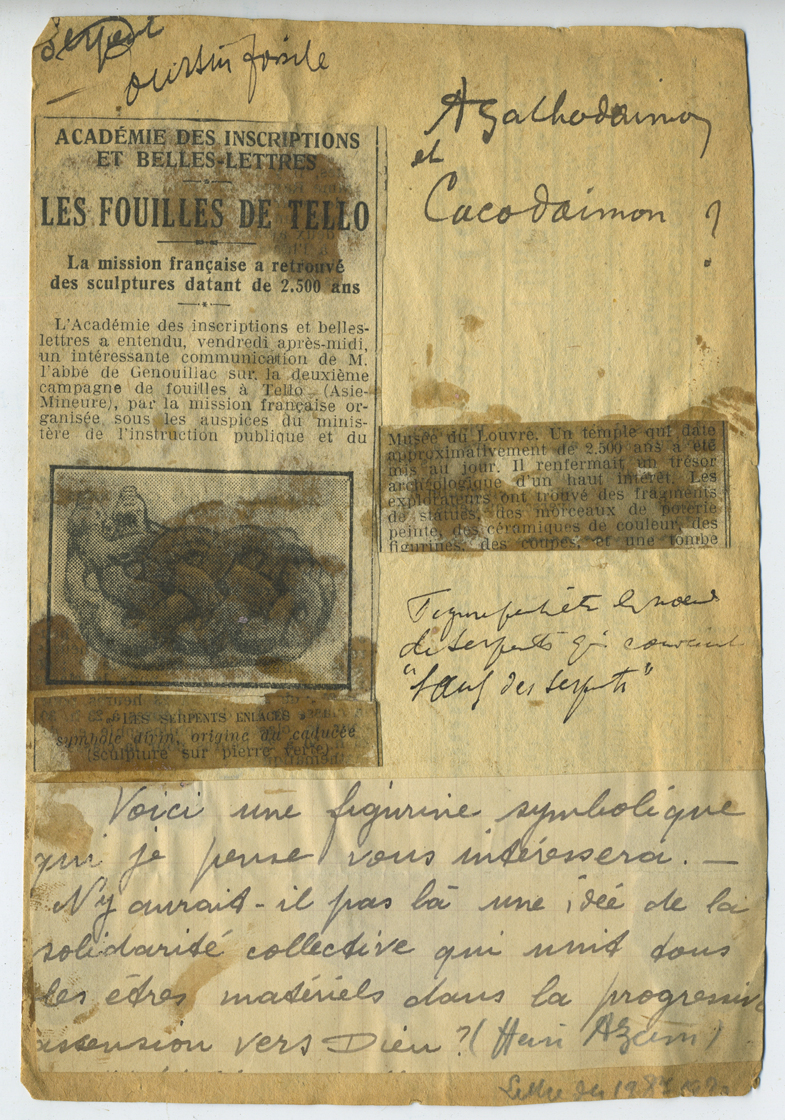 Serpent
— oursin fossile
ACADÉMIE DES INSCRIPTIONS
ET BELLES-LETTRES
LES FOUILLES DE TELLO
La mission française a retrouvé
des sculptures datant de 2.500 ans
L'Académie des inscriptions et belles-
lettres a entendu, vendredi après-midi,
un intéressante communication de M.
l'abbé de Genouillac sur la deuxième
campagne de fouilles à Tello (Asie-
Mineure), par la mission française or-
ganisée sous les auspices du minis-
tère de l'instruction publique et du
« LES SERPENTS ENLACÉS »
symbole divin, origine du caducée
(sculpture sur pierre verte)
Agathodaimon
et
Cacodaimon ?
Musée du Louvre. Un temple qui date
approximativement de 2.500 ans a été
mis au jour. Il renfermait un trésor
archéologique d'un haut intérêt. Les
explorateurs ont trouvé des fragments
de statues, des morceaux de poterie
peinte, des céramiques de couleur, des
figurines, des coupes, et une tombe
Figure peut-être le noeud
de serpents qui couvrent
"l'oeuf des serpents"
Voici une figurine symbolique
qui je pense vous intéressera. —
N'y aurait-il pas là une idée de la
solidarité collective qui unit tous
les êtres matériels dans la progressive
ascension vers Dieu ? (Henri)
Lettre du